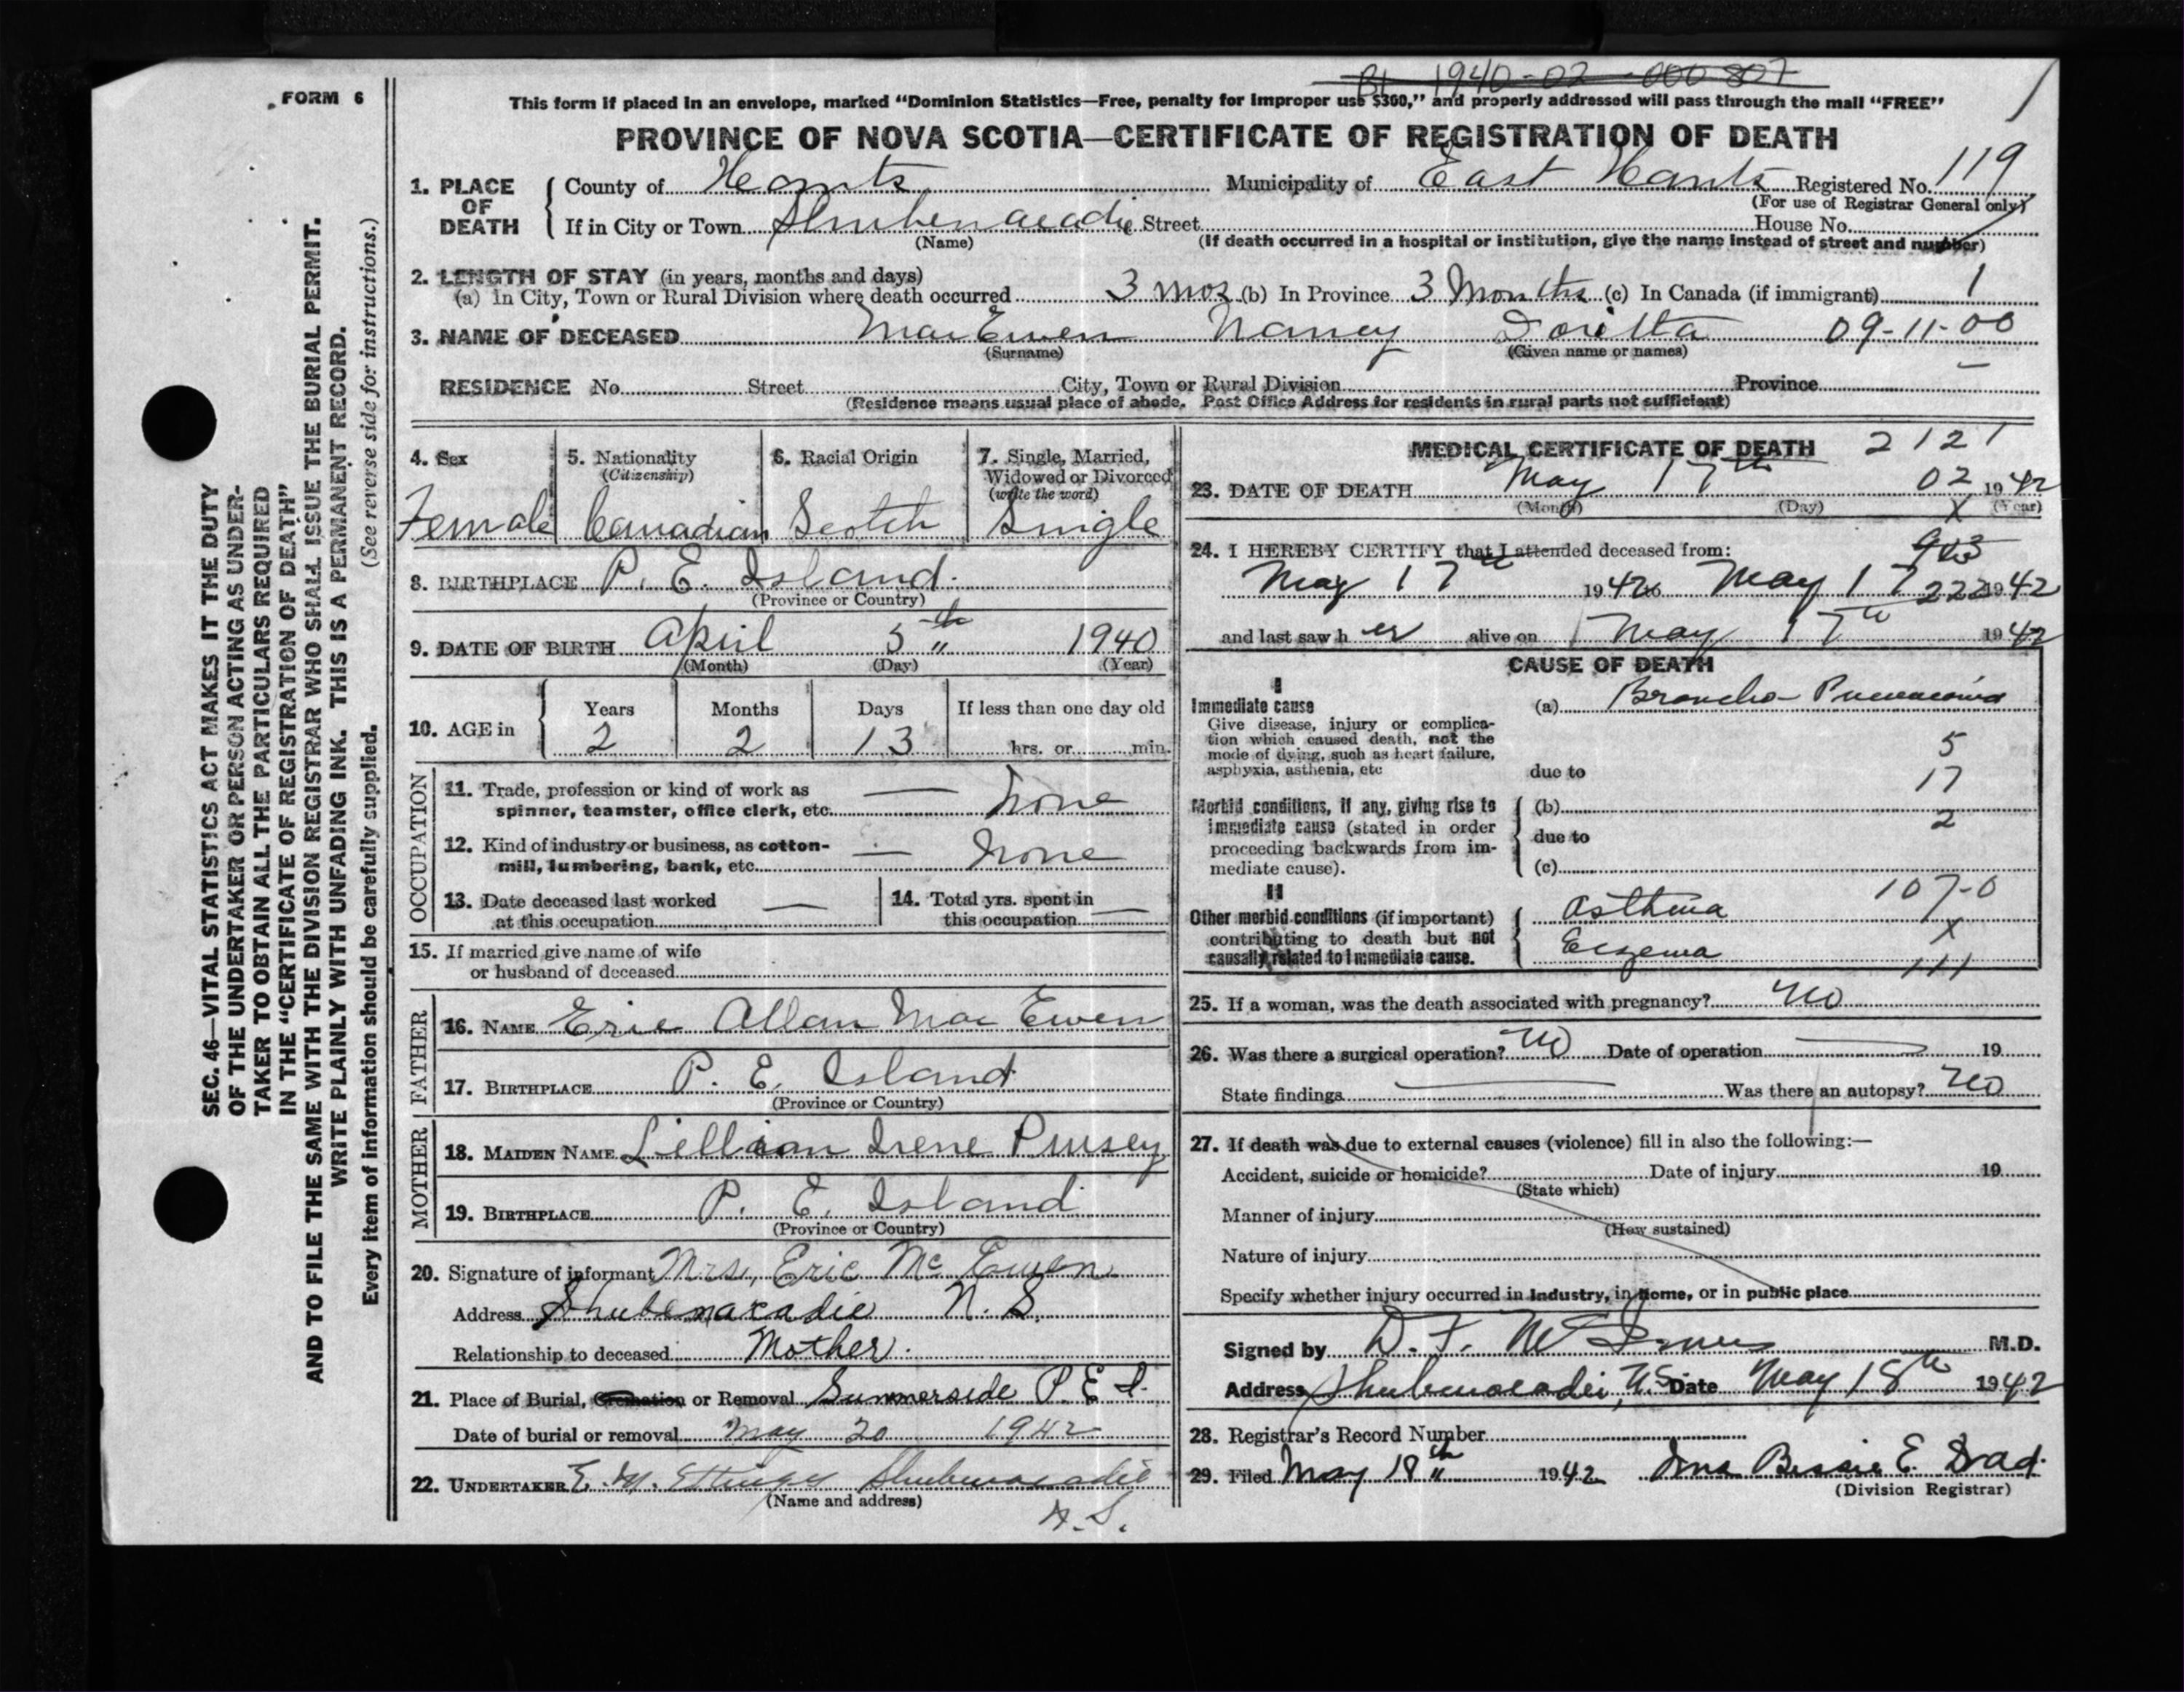 Bt 1940-02-000807
FORM 6
This form if placed in an envelope, marked "Dominion Statistics—Free, penalty for improper use $300," and properly addressed will pass through the mail "FREE"
PROVINCE OF NOVA SCOTIA—CERTIFICATE OF REGISTRATION OF DEATH
1. PLACE OF DEATH County of Hants Municipality of East Hants Registered No. 119
(For use of Registrar General only)
If in City or Town Shubenacadie Street House No.
(Name) (If death occurred in a hospital or institution, give the name instead of street and number)
2. LENGTH OF STAY (in years, months and days)
(a) in City, Town or Rural Division where death occurred 3 mos (b) In Province 3 Months (c) In Canada (if immigrant) 1
3. NAME OF DECEASED MacEwen Nancy Loretta 09-11-00
(Surname) (Given name or names)
RESIDENCE No. Street City, Town or Rural Division Province
(Residence means usual place of abode. Post Office Address for residents in rural parts not sufficient)
4. Sex 5. Nationality 6. Racial Origin 7. Single, Married,
(Citizenship) Widowed or Divorced
(write the word)
Female Canadian Scotch Single
8. BIRTHPLACE P. E. Island
(Province or Country)
9. DATE OF BIRTH April 5th 1940
(Month) (Day) (Year)
10. AGE in Years Months Days If less than one day old
2 2 13 hrs. or min.
OCCUPATION
11. Trade, profession or kind of work as
spinner, teamster, office clerk, etc. — None
12. Kind of industry or business, as cotton-
mill, lumbering, bank, etc. — None
13. Date deceased last worked — 14. Total yrs. spent in
at this occupation this occupation —
15. If married give name of wife
or husband of deceased
FATHER
16. NAME Eric Allan Mac Ewen
17. BIRTHPLACE P. E. Island
(Province or Country)
MOTHER
18. MAIDEN NAME Lillian Irene Pursey
19. BIRTHPLACE P. E. Island
(Province or Country)
20. Signature of informant Mrs, Eric Mc Ewen
Address Shubenacadie N. S.
Relationship to deceased Mother.
21. Place of Burial, Cremation or Removal Summerside P. E. I.
Date of burial or removal May 20 1942
22. UNDERTAKER E. M. Ettinger Shubenacadie
(Name and address)
N. S.
MEDICAL CERTIFICATE OF DEATH 2121
23. DATE OF DEATH May 17th 02 1942
(Month) (Day) X (Year)
24. I HEREBY CERTIFY that I attended deceased from:
May 17th 1942 to May 17 222 1942
and last saw h er alive on May 17th 1942
CAUSE OF DEATH
I
Immediate cause (a) Broncho-Pneumonia
Give disease, injury or complica-
tion which caused death, not the 5
mode of dying, such as heart failure,
asphyxia, asthenia, etc due to 17
Morbid conditions, if any, giving rise to (b)
immediate cause (stated in order 2
proceeding backwards from im- due to
mediate cause). (c)
II 107-0
Other morbid conditions (if important) Asthma
contributing to death but not X
causally related to immediate cause. Eczema
111
25. If a woman, was the death associated with pregnancy? no
26. Was there a surgical operation? no Date of operation 19
State findings Was there an autopsy? no
27. If death was due to external causes (violence) fill in also the following:—
Accident, suicide or homicide? Date of injury 19
(State which)
Manner of injury
(How sustained)
Nature of injury
Specify whether injury occurred in industry, in home, or in public place
Signed by D. F. McInnes M.D.
Address Shubenacadie, N.S. Date May 18th 1942
28. Registrar's Record Number
29. Filed May 18th 1942 Bessie E.
(Division Registrar)
SEC. 46—VITAL STATISTICS ACT MAKES IT THE DUTY
OF THE UNDERTAKER OR PERSON ACTING AS UNDER-
TAKER TO OBTAIN ALL THE PARTICULARS REQUIRED
IN THE "CERTIFICATE OF REGISTRATION OF DEATH"
AND TO FILE THE SAME WITH THE DIVISION REGISTRAR WHO SHALL ISSUE THE BURIAL PERMIT.
WRITE PLAINLY WITH UNFADING INK. THIS IS A PERMANENT RECORD.
Every item of information should be carefully supplied. (See reverse side for instructions.)